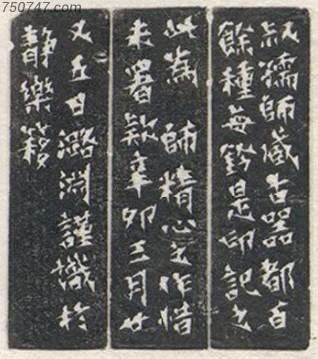 750747.com
叔孺師藏古器都百
餘種每鈐是印記之
此為 師精心之作惜
未署款辛卯三月廿
又五日潞淵謹識於
靜樂簃